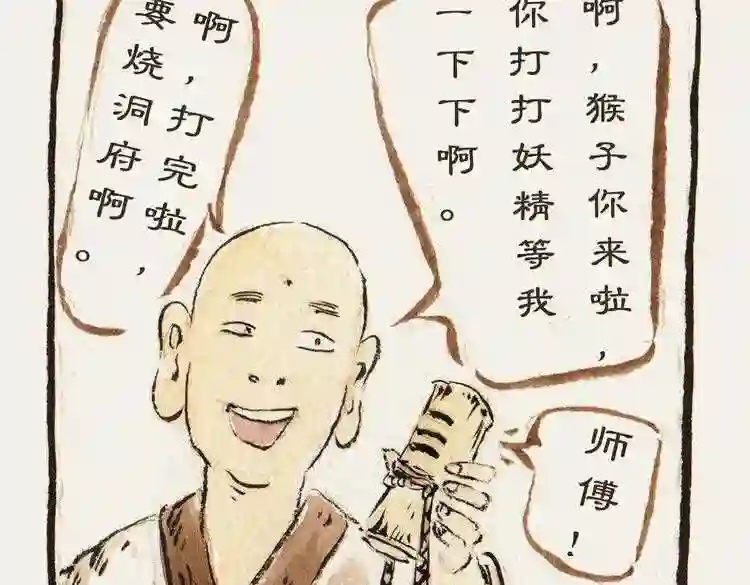 啊，猴子你来啦，
你打打妖精等我
一下下啊。
啊，打完啦，
要烧洞府啊。
师傅！